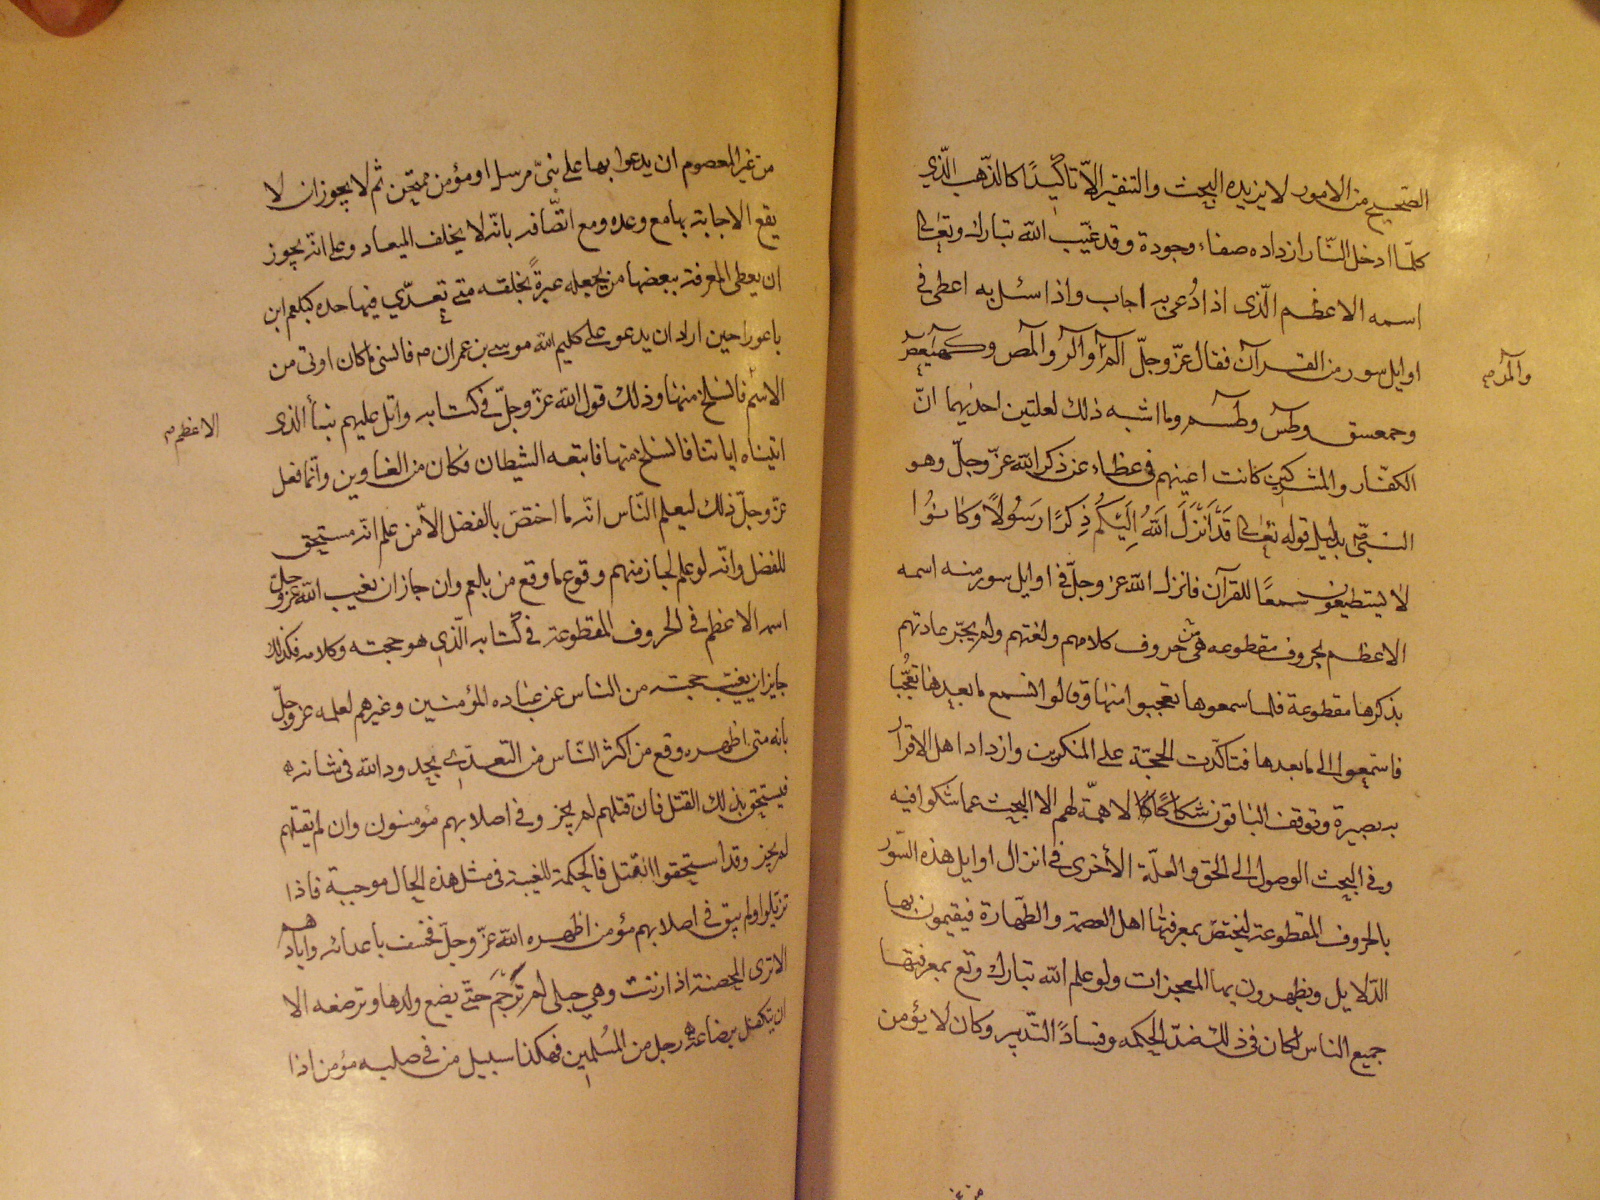 الصّحيح من الامور لا يزيده البحث والتنقير الّا تاكّيدًا كالذّهب الّذي
كلّما ادخل النّار ازداده صفاء وجودة وقد غيّب الله تبارك وتعالى
اسمه الاعظم الّذى اذا دُعى به اجاب واذا سئل به اعطى فى
اوايل سور من القرآن فقال عزّ وجلّ الٓمٓ والٓرٓ والٓمٓصٓ وكٓهٓيٰعٓصٓ
والٓمٓرٓ
وحمعسق وطسٓ وطسٓمٓ وما اشبه ذلك لعلتين احديهما انّ
الكفّار والمشركين كانت اعينهم فى غطاء عن ذكر الله عزّ وجلّ وهو
النبىّ بدليل قوله تعالى قَدْ اَنْزَلَ اَللهُ اِلَيْكُم ذِكرًا رَسُولًا وَكانوُا
لا يستطيعون سمعًا للقرآن فانزل الله عز وجلّ فى اوايل سور منه اسمه
الاعظم بحروف مقطوعه هى من حروف كلامهم ولغتهم ولم يجّر عادتهم
بذكرها مقطوعة فلما سمعوها تعجبوا منها وقالوا نسمع ما بعدها تعجُّبا
فاستمعوا الى ما بعدها فتاكّدت الحجّة على المنكرين وازداد اهل الاقرار
به بصيرة وتوقف الباقون شكاكًا لا همّة لهم الا البحث عما شكوا فيه
وفى البحث الوصول الى الحق والعلّة الأخرى فى انزال اوايل هذه السّور
بالحروف المقطوعة ليختصّ بمعرفتها اهل العصمة والطّهارة فيقيمون بها
الدّلايل ويظهرون بها المعجزات ولو علم الله تبارك وتع بمعرفتها
جميع الناس لكان فى ذلك ضدّ الحكمه وفسادً التّدبير وكان لا يؤمن
من غير المعصوم ان يدعوا بها على نبىّ مرسل او مؤمن ممتحن ثم لا يجوز ان لا
يقع الاجابة بها مع وعده ومع اتّصافه بانّه لا يخلف الميعاد وعلى انّه يجوز
ان يعطى المعرفة ببعضها من يجعله عبرةً لخلقه متى تعدّي فيها حده كبلعم ابن
باعورا حين اراد ان يدعو على كليم الله موسى بن عمران فانسى ما كان اوتى من
الاسم فانسلخ منها وذلك قول الله عزّ وجلّ فى كتابه واتل عليهم نبأ الذى
الاعظم
اتيناه اياتنا فانسلخ منها فاتبعه الشيطان فكان من الغاوين وانّما فعل
عزّ وجلّ ذلك ليعلم النّاس انّه ما اختصّ بالفضل الاّ من علم انّه مستحق
للفضل وانّه لو علم لجاز منهم وقوع ما وقع من بلعم وان جاز ان يغيب الله عزّ وجلّ
اسمه الاعظم فى الحروف المقطوعة فى كتابه الّذي هو حجته وكلامه فكذلك
جايز ان يغيّب حجته من الناس عن عباده المؤمنين وغيرهم لعلمه عز وجلّ
بانه متى اظهره وقع من اكثر النّاس من التّعدّي بحدود الله فى شانه
فيستحق بذلك القتل فان قتلهم لم يجز وفى اصلابهم مؤمنون وان لم يقتلهم
لم يجز وقد استحقوا القتل فالحكمة للغيبة فى مثل هذه الحال موجبة فاذا
تزيّلوا ولم يبق فى اصلابهم مؤمن اظهره الله عزّ وجلّ فخسف باعدائه وابادهم
الا ترى المحصنة اذا زنت وهى حبلى لم تُرجَم حتّى يضع ولدها وترضعه الا
ان يتكفل برضاعه رجل من المُسلمين فهكذا سبيل من فى صلبه مؤمن اذا